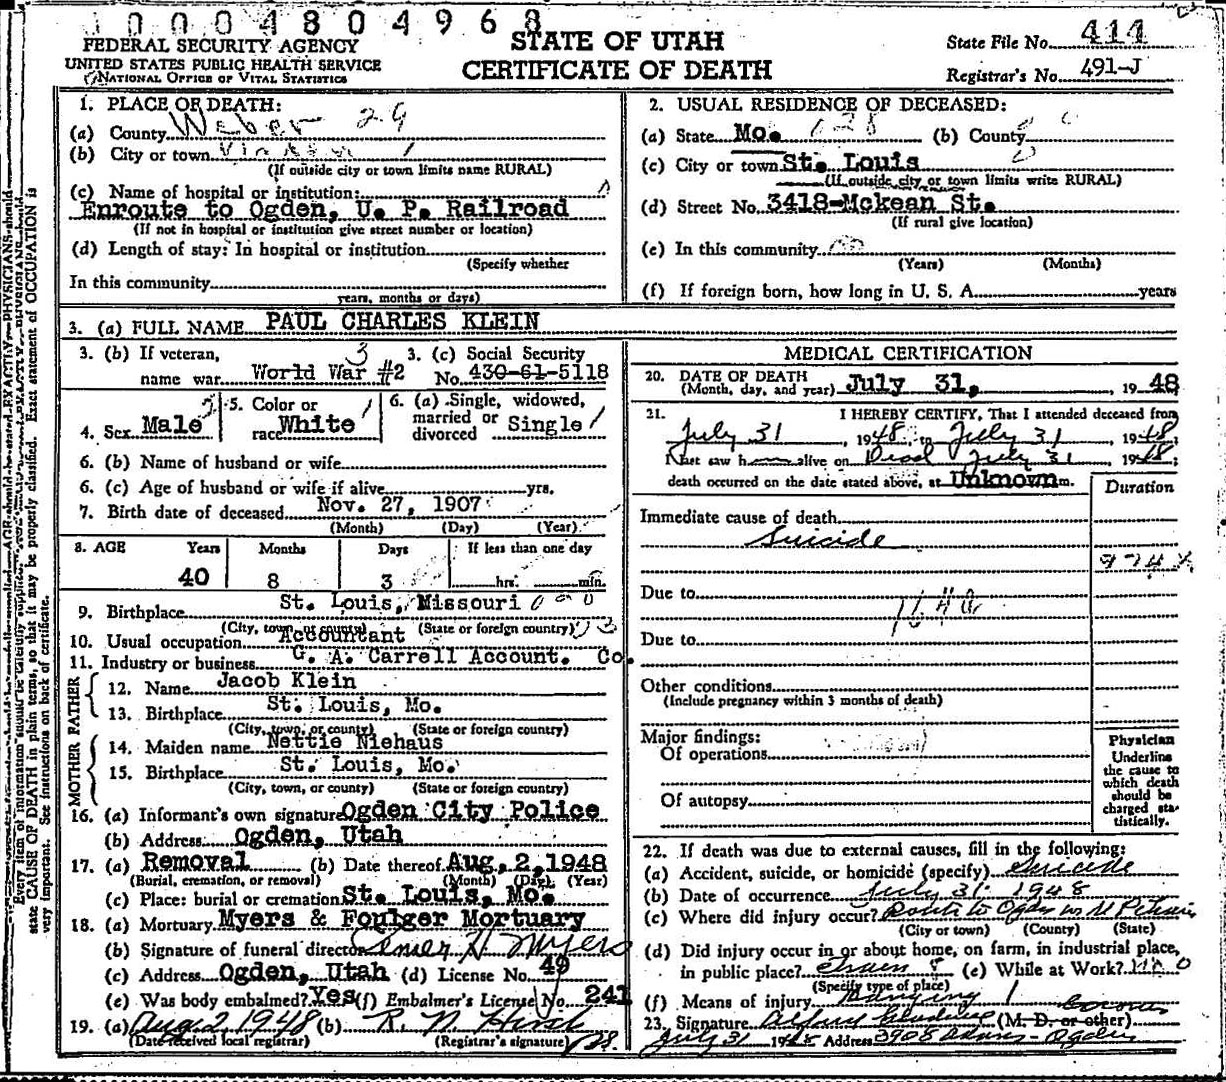 10004804968
FEDERAL SECURITY AGENCY
UNITED STATES PUBLIC HEALTH SERVICE
NATIONAL OFFICE OF VITAL STATISTICS
STATE OF UTAH
CERTIFICATE OF DEATH
State File No. 414
Registrar's No. 491-J
1. PLACE OF DEATH:
(a) County Weber 29
(b) City or town
(If outside city or town limits name RURAL)
(c) Name of hospital or institution:
Enroute to Ogden, U. P. Railroad
(If not in hospital or institution give street number or location)
(d) Length of stay: In hospital or institution
(Specify whether
In this community
years, months or days)
2. USUAL RESIDENCE OF DECEASED:
(a) State Mo. (b) County
(c) City or town St. Louis
(If outside city or town limits write RURAL)
(d) Street No. 3418-Mckean St.
(If rural give location)
(e) In this community
(Years) (Months)
(f) If foreign born, how long in U. S. A. years
3. (a) FULL NAME PAUL CHARLES KLEIN
3. (b) If veteran, 3. (c) Social Security
name war World War #2 No. 430-61-5118
4. Sex Male 5. Color or race White 6. (a) Single, widowed, married or divorced Single
6. (b) Name of husband or wife
6. (c) Age of husband or wife if alive yrs.
7. Birth date of deceased Nov. 27, 1907
(Month) (Day) (Year)
8. AGE Years Months Days If less than one day
40 8 3 hr. min.
9. Birthplace St. Louis, Missouri
(City, town, or county) (State or foreign country)
10. Usual occupation Accountant
11. Industry or business G. A. Carrell Account. Co.
FATHER
12. Name Jacob Klein
13. Birthplace St. Louis, Mo.
(City, town, or county) (State or foreign country)
MOTHER
14. Maiden name Nettie Niehaus
15. Birthplace St. Louis, Mo.
(City, town, or county) (State or foreign country)
16. (a) Informant's own signature Ogden City Police
(b) Address Ogden, Utah
17. (a) Removal (b) Date thereof Aug. 2, 1948
(Burial, cremation, or removal) (Month) (Day) (Year)
(c) Place: burial or cremation St. Louis, Mo.
18. (a) Mortuary Myers & Foulger Mortuary
(b) Signature of funeral director Elmer H Myers
(c) Address Ogden, Utah (d) License No. 49
(e) Was body embalmed? Yes (f) Embalmer's License No. 241
19. (a) Aug 2, 1948 (b) R. N. Hirst
(Date received local registrar) (Registrar's signature)
MEDICAL CERTIFICATION
20. DATE OF DEATH
(Month, day, and year) July 31, 1948
21. I HEREBY CERTIFY, That I attended deceased from
July 31, 1948 to July 31, 1948,
I last saw h alive on Dead July 31 1948;
death occurred on the date stated above, at Unknown m.
Duration
Immediate cause of death
Suicide
974X
Due to
Due to
Other conditions
(Include pregnancy within 3 months of death)
Major findings:
Of operations
Of autopsy
Physician
Underline
the cause to
which death
should be
charged sta-
tistically.
22. If death was due to external causes, fill in the following:
(a) Accident, suicide, or homicide (specify) Suicide
(b) Date of occurrence July 31 1948
(c) Where did injury occur? Route to Ogden
(City or town) (County) (State)
(d) Did injury occur in or about home, on farm, in industrial place,
in public place? (e) While at Work? No
(Specify type of place)
(f) Means of injury Hanging
Coroner
23. Signature (M. D. or other)
July 31 1948 Address 3908 Adams - Ogden
Every item of information should be carefully supplied. AGE should be stated EXACTLY. PHYSICIANS should
state CAUSE OF DEATH in plain terms, so that it may be properly classified. Exact statement of OCCUPATION is
very important. See instructions on back of certificate.